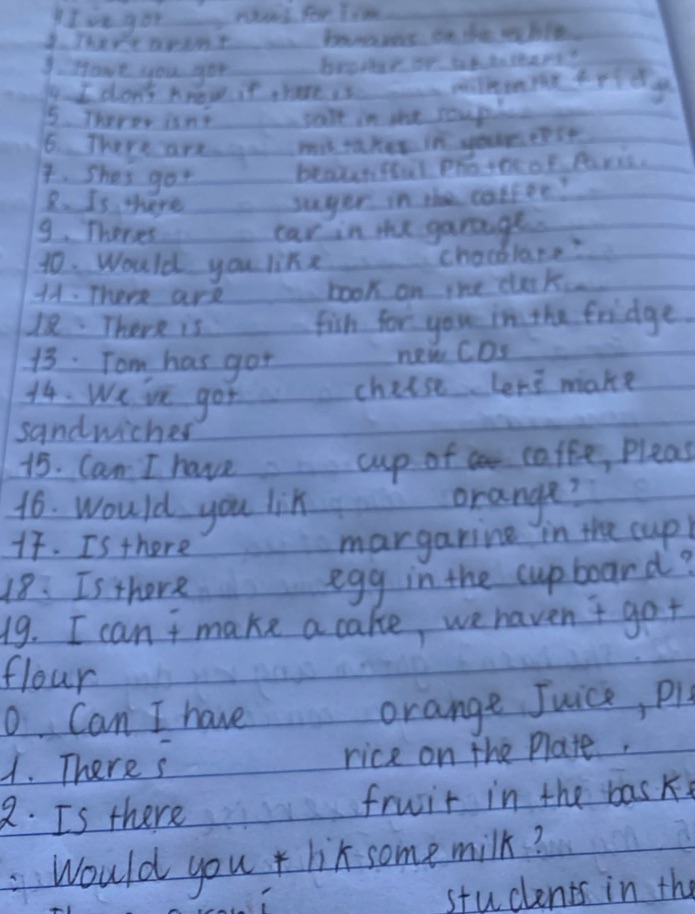 I've got news for Tom
2. There aren't bananas on the table
3. Have you got brother or
4. I don't know if there is milk in the fridg
5. There isn't salt in the soup
6. There are mistakes in your test
7. She's got beautifful Photos of Paris.
8. Is there suger in the coffee?
9. Theres car in the garage
10. Would you like chocolate?
11. There are book on the desk
12. There is fish for you in the fridge.
13. Tom has got new CDs
14. We ive got cheese. Let's make
sandwiches
15. Can I have cup of coffe, Pleas
16. Would you lik orange?
17. Is there margarine in the cup
18. Is there egg in the cupboard?
19. I can't make a cake, we haven't got
flour
0. Can I have orange Juice, Pls
1. There's rice on the Plate.
2. Is there fruit in the baske
Would you lik some milk?
students in the